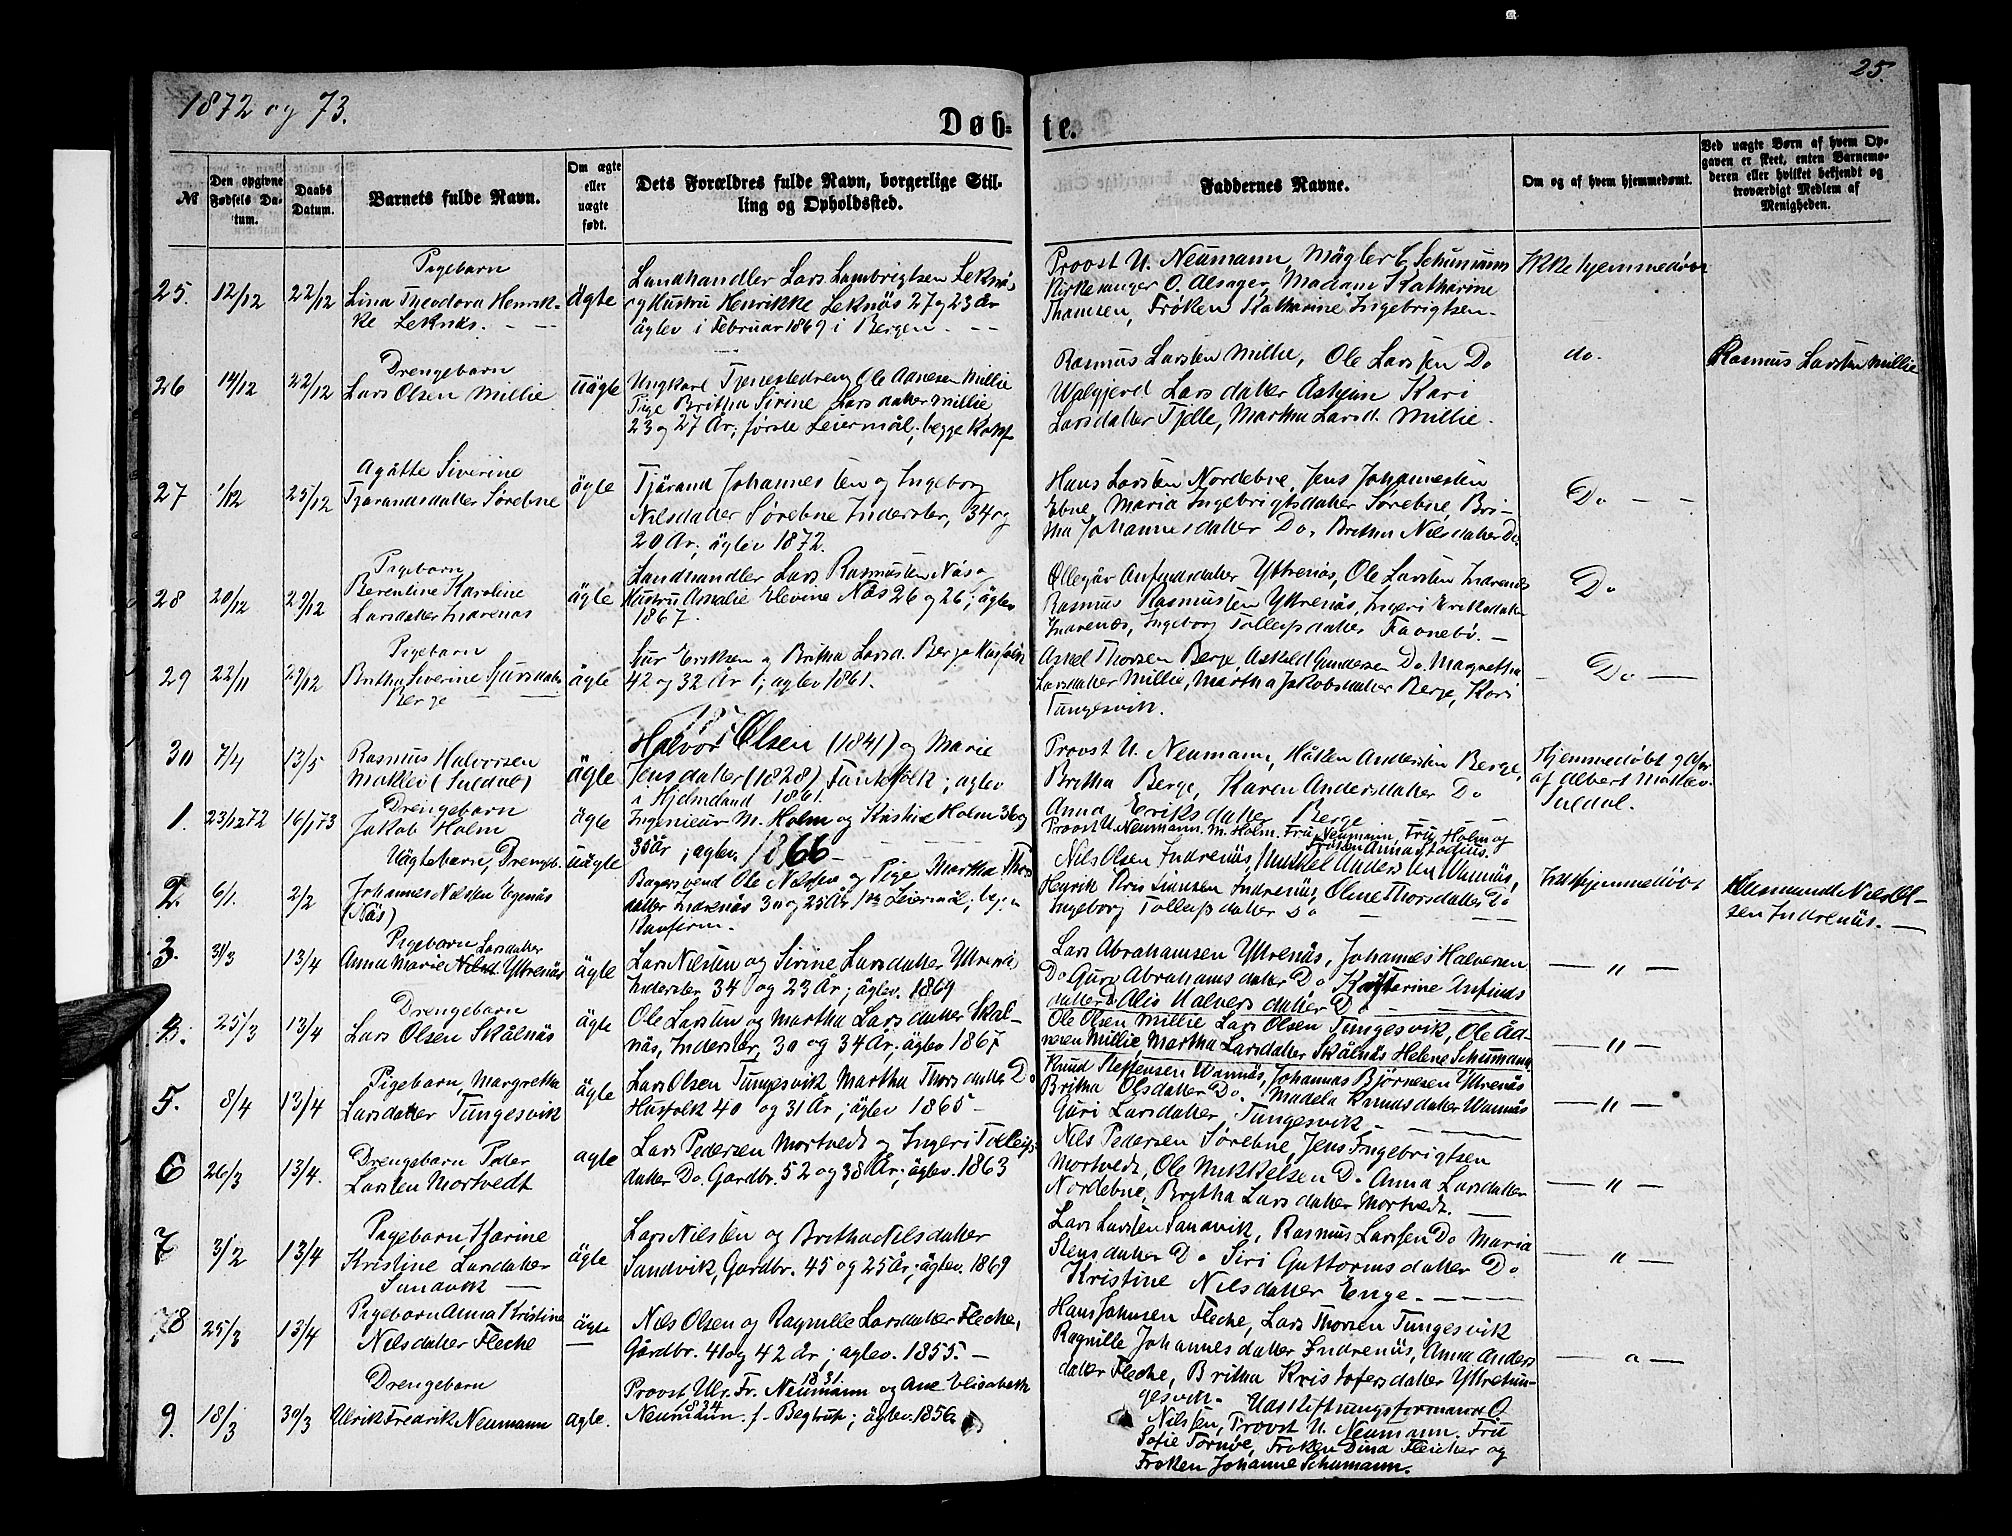 1872 og 73.
Døb-
te.
25.
№
Den opgivne Fødsels Datum.
Daabs Datum.
Barnets fulde Navn.
Om ægte eller uægte født.
Dets Forældres fulde Navn, borgerlige Stilling og Opholdssted.
Faddernes Navne.
Om og af hvem hjemmedømt.
Ved uægte Børn af hvem Opgaven er skeet, enten Barnemoderen eller hvilket bekjendt og troværdigt Medlem af Menigheden.
25. 12/12 22/12
Pigebarn
Lina Theodora Henrik-
ke Leknäs.
ägte
Landhandler Lars Lambrigtsen Leknäs
og Hustru Henrikke Leknäs 27 og 23 år
äglev i Februar 1869 i Bergen.
Provst U. Neumann, Mägler C. Schumann
Kirkesanger O. Alsager, Madam Katharine
Thamsen, Frøken Katharine Ingebrigtsen.
Ikke hjemmedøbt
26 14/12 22/12
Drengebarn
Lars Olsen Millie
uägte
Ungkarl Tjenestedreng Ole Aanesen Millie
Pige Britha Sirine Larsdatter Millie
23 og 27 År; første Leiermål; begge Konf
Rasmus Larsten Millie, Ole Larsten Do
Walgjerd Larsdatter Askjem Kari
Larsdatter Tjelle, Martha Larsd. Millie.
do.
Rasmus Larsten Millie
27 1/12 25/12
Agåtte Siverine
Tjärandsdatter Sørebne
ägte
Tjärand Johannesten og Ingeborg
Nilsdatter Sørebne Inderster, 34 og
20 År; äglev 1872.
Hans Larsten Nordebne, Jens Johannesten
Ebne, Maria Ingebrigtsdatter Sørebne, Bri-
tha Johannesdatter Do. Britha Nilsdatter Do
Do
28 20/12 29/12
Pigebarn
Berentine Karoline
Larsdatter Indrenäs
ägte
Landhandler Lars Rasmusten Näs og
Hustru Amalie Elevine Näs 26 og 26; äglev
1867.
Ollegår Anfindsdatter Yttrenäs, Ole Larsten Indrenäs
Rasmus Rasmusten Yttrenäs, Ingeri Eriksdatter
Indrenäs, Ingeborg Tollefsdatter Favnebö.
Do
29 22/11 29/12
Pigebarn
Britha Siverine Sjursdatr.
Berge
ägte
Sjur Eriksen og Britha Larsd. Berge Husfolk
42 og 32 År; äglev 1861.
Askel Thorsen Berge, Askild Gundersen Do. Magretha
Larsdatter Millie, Martha Jakobsdatter Berge, Kari
Tungesvik.
Do
30 7/4 13/5
Rasmus Halvorsen
Mokleiv (Suldal)
ägte
Halvor Olsen (1841) og Marie
Jensdatter (1828) Fantefolk; aglev
i Hjelmeland 1861.
Provst U. Neumann, Håken Andersten Berge,
Britha Berge, Karen Andersdatter Do
Anna Eriksdatter Berge
Hjemmedøbt 9 Apr
af Albert Mokleiv
Suldal.
1. 23/12 72 16/1 73
Drengebarn
Jakob Holm
ägte
Ingenieur M. Holm og Kristine Holm 36 og
35 år; aglev. 1866
Provst U. Neumann. M. Holm. Fru Neumann, Fru Holm og
Frøken Anna
2. 6/1. 2/2
Uägtebarn, Drengeb.
Johannes Nilsten Egenäs
(Näs)
uägte
Bagersvend Ole Nilsen og Pige Martha Thors
datter Indrenäs 30 og 25 År 1ste Leiermål; begge
Konfirm.
Nils Olsen Indrenäs, Mikkel Andersten Wannäs,
Henrik Kristiansen Indrenäs, Oline Thorsdatter Do
Ingeborg Tollefsdatter Do
Ikke hjemmedøbt
Husmand Nils Ol-
sen Indrenäs.
3. 31/3 13/4
Pigebarn Larsdatter
Anna Marie Nilsd. Yttrenäs
ägte
Lars Nilsten og Sirine Larsdatter Yttrenäs
Inderster 34 og 23 År; äglev. 1869
Lars Abrahamsen Yttrenäs, Johannes Halvorsen
Do Guro Abrahamsdatter Do Katherine Anfinds
datter Do Alis Halvorsdatter Do
"
4. 25/3 13/4
Drengebarn
Lars Olsen Skålnäs
ägte
Ole Larsten og Martha Larsdatter Skål-
näs, Inderster, 30 og 34 År; äglev 1867
Ole Olsen Millie Lars Olsen Tungesvik, Ole Åd-
neren Millie, Martha Larsdatter Skålnäs Helene Schumann
"
5. 8/4 13/4
Pigebarn, Margretha
Larsdatter Tungesvik
ägte
Lars Olsen Tungesvik Martha Thorsdatter Do
Husfolk 40 og 31 År; äglev 1865
Knud Steffensen Wannäs, Johannes Bjørnesen Yttrenäs
Britha Olsdatter Do. Madela Knudsdatter Wannäs
Guri Larsdatter, Tungesvik
"
6 26/3 13/4.
Drengebarn Peder
Larsten Mortvedt
agte
Lars Pedersen Mortvedt og Ingeri Tollefs-
datter Do. Gardbr. 52 og 38 År; äglev. 1863
Nils Pedersen Sørebne, Jens Ingebrigtsen
Mortvedt, Ole Mikkelsen Do Anna Larsdatter
Nordebne, Britha Larsdatter Mortvedt.
"
7 3/2 13/4
Pigebarn, Karine
Kristine Larsdatter
Sandvik
ägte
Lars Nilsten og Britha Nilsdatter
Sandvik, Gardbr. 45 og 25 år; äglev. 1869
Lars Larsten Sandvik, Rasmus Larsen Do Maria
Stensdatter Do Siri Guttormsdatter Do
Kristine Nilsdatter Enge.
"
78 25/3 13/4
Pigebarn Anna Kristine
Nilsdatter Fleche
ägte
Nils Olsen og Ragnille Larsdatter Fleche,
Gårdbr. 41 og 42 år; aglev. 1855.
Hans Johnsen Fleche, Lars Thorsen Tungesvik
Ragnille Johannesdatter Indrenäs, Anna Anders
datter Fleche, Britha Kristofersdatter Yttretun-
gesvik.
"
9. 18/3 30/3
Drengebarn
Ulrik Fredrik Neumann
agte.
Provst Ulr. Fr. Neumann 1831. og Ane Elisabeth
Neumann 1834 f. Begtrup; äglev. 1856
Udskiftningsformand O
Nilsten, Provst U. Neumann. Fru
Sofie Tornøe, Frøken Dina Fleicher og
Frøken Johanne Schumann.